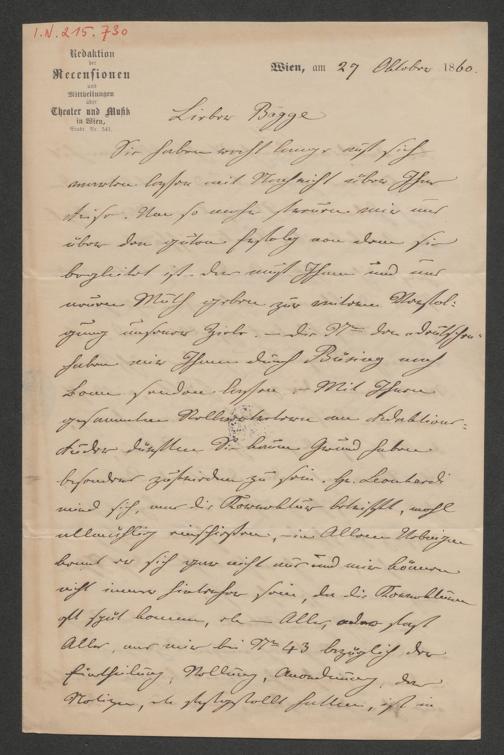 I.N. 215.730
Redaktion
der
Recensionen
und
Mittheilungen
über
Theater und Musik
in Wien,
Stadt Nr. 541.
Wien, am 27 Oktober 1860.
Lieber Bagge
Sie haben recht lange auf sich
warten lassen mit Nachricht über Ihre
Reise. Um so mehr freuen wir uns
über den guten Erfolg von dem sie
begleitet ist. Der muß Ihnen und uns
neuen Muth geben zur weiteren Verfol-
gung unserer Ziele. – Die Nrn der Deutschen
haben wir Ihnen durch Büsing nach
Bonn senden lassen. – Mit Ihren
gesammten Stellvertretern am Redaktions-
Ruder dürften Sie kaum Grund haben
besonders zufrieden zu sein. Hr. Leonhardi
wird sich, was die Korrektur betrifft, wohl
allmählig einschießen, – in Allem Uebrigen
kennt er sich gar nicht aus und wir können
nicht immer hinterher sein, da die Korrekturen
oft spät kommen, etc – Alles, fast
Alles, was wir bei Nr 43 bezüglich der
Eintheilung, Stellung, Anordnung, der
Notizen, etc festgestellt hatten, ist in